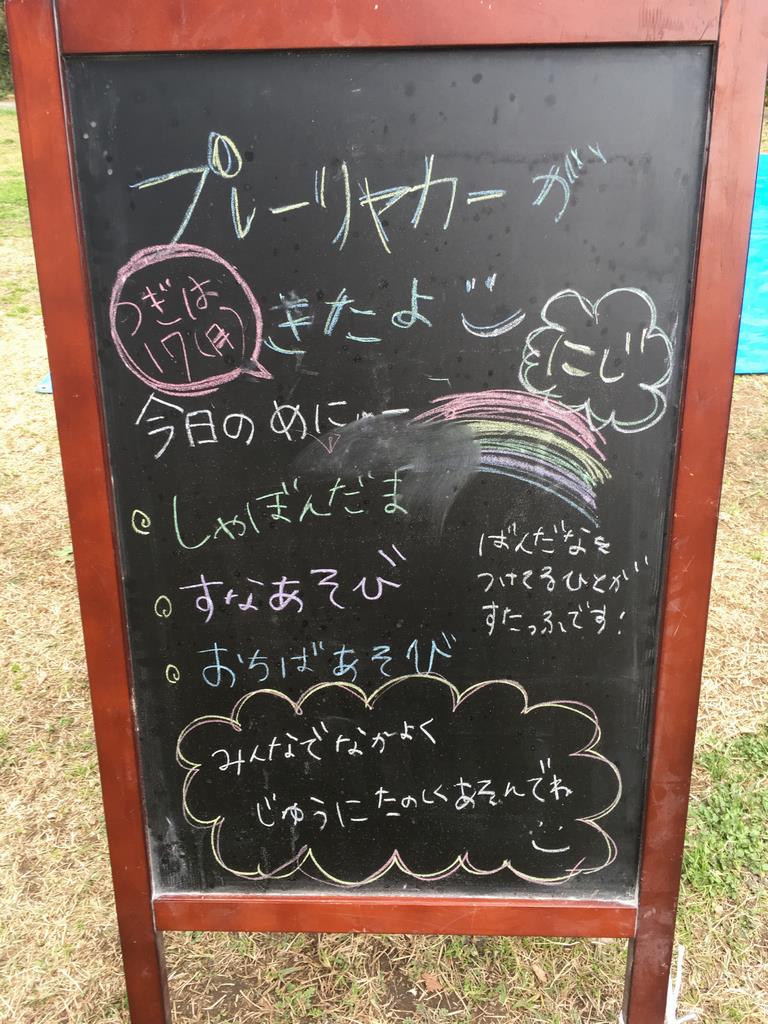 プレーリヤカーが
きたよ
つぎは
にじ
今日のめにゅー
しゃぼんだま
すなあそび
おちばあそび
ばんだなを
つけてるひとが
すたっふです!
みんなでなかよく
じゆうにたのしくあそんでね